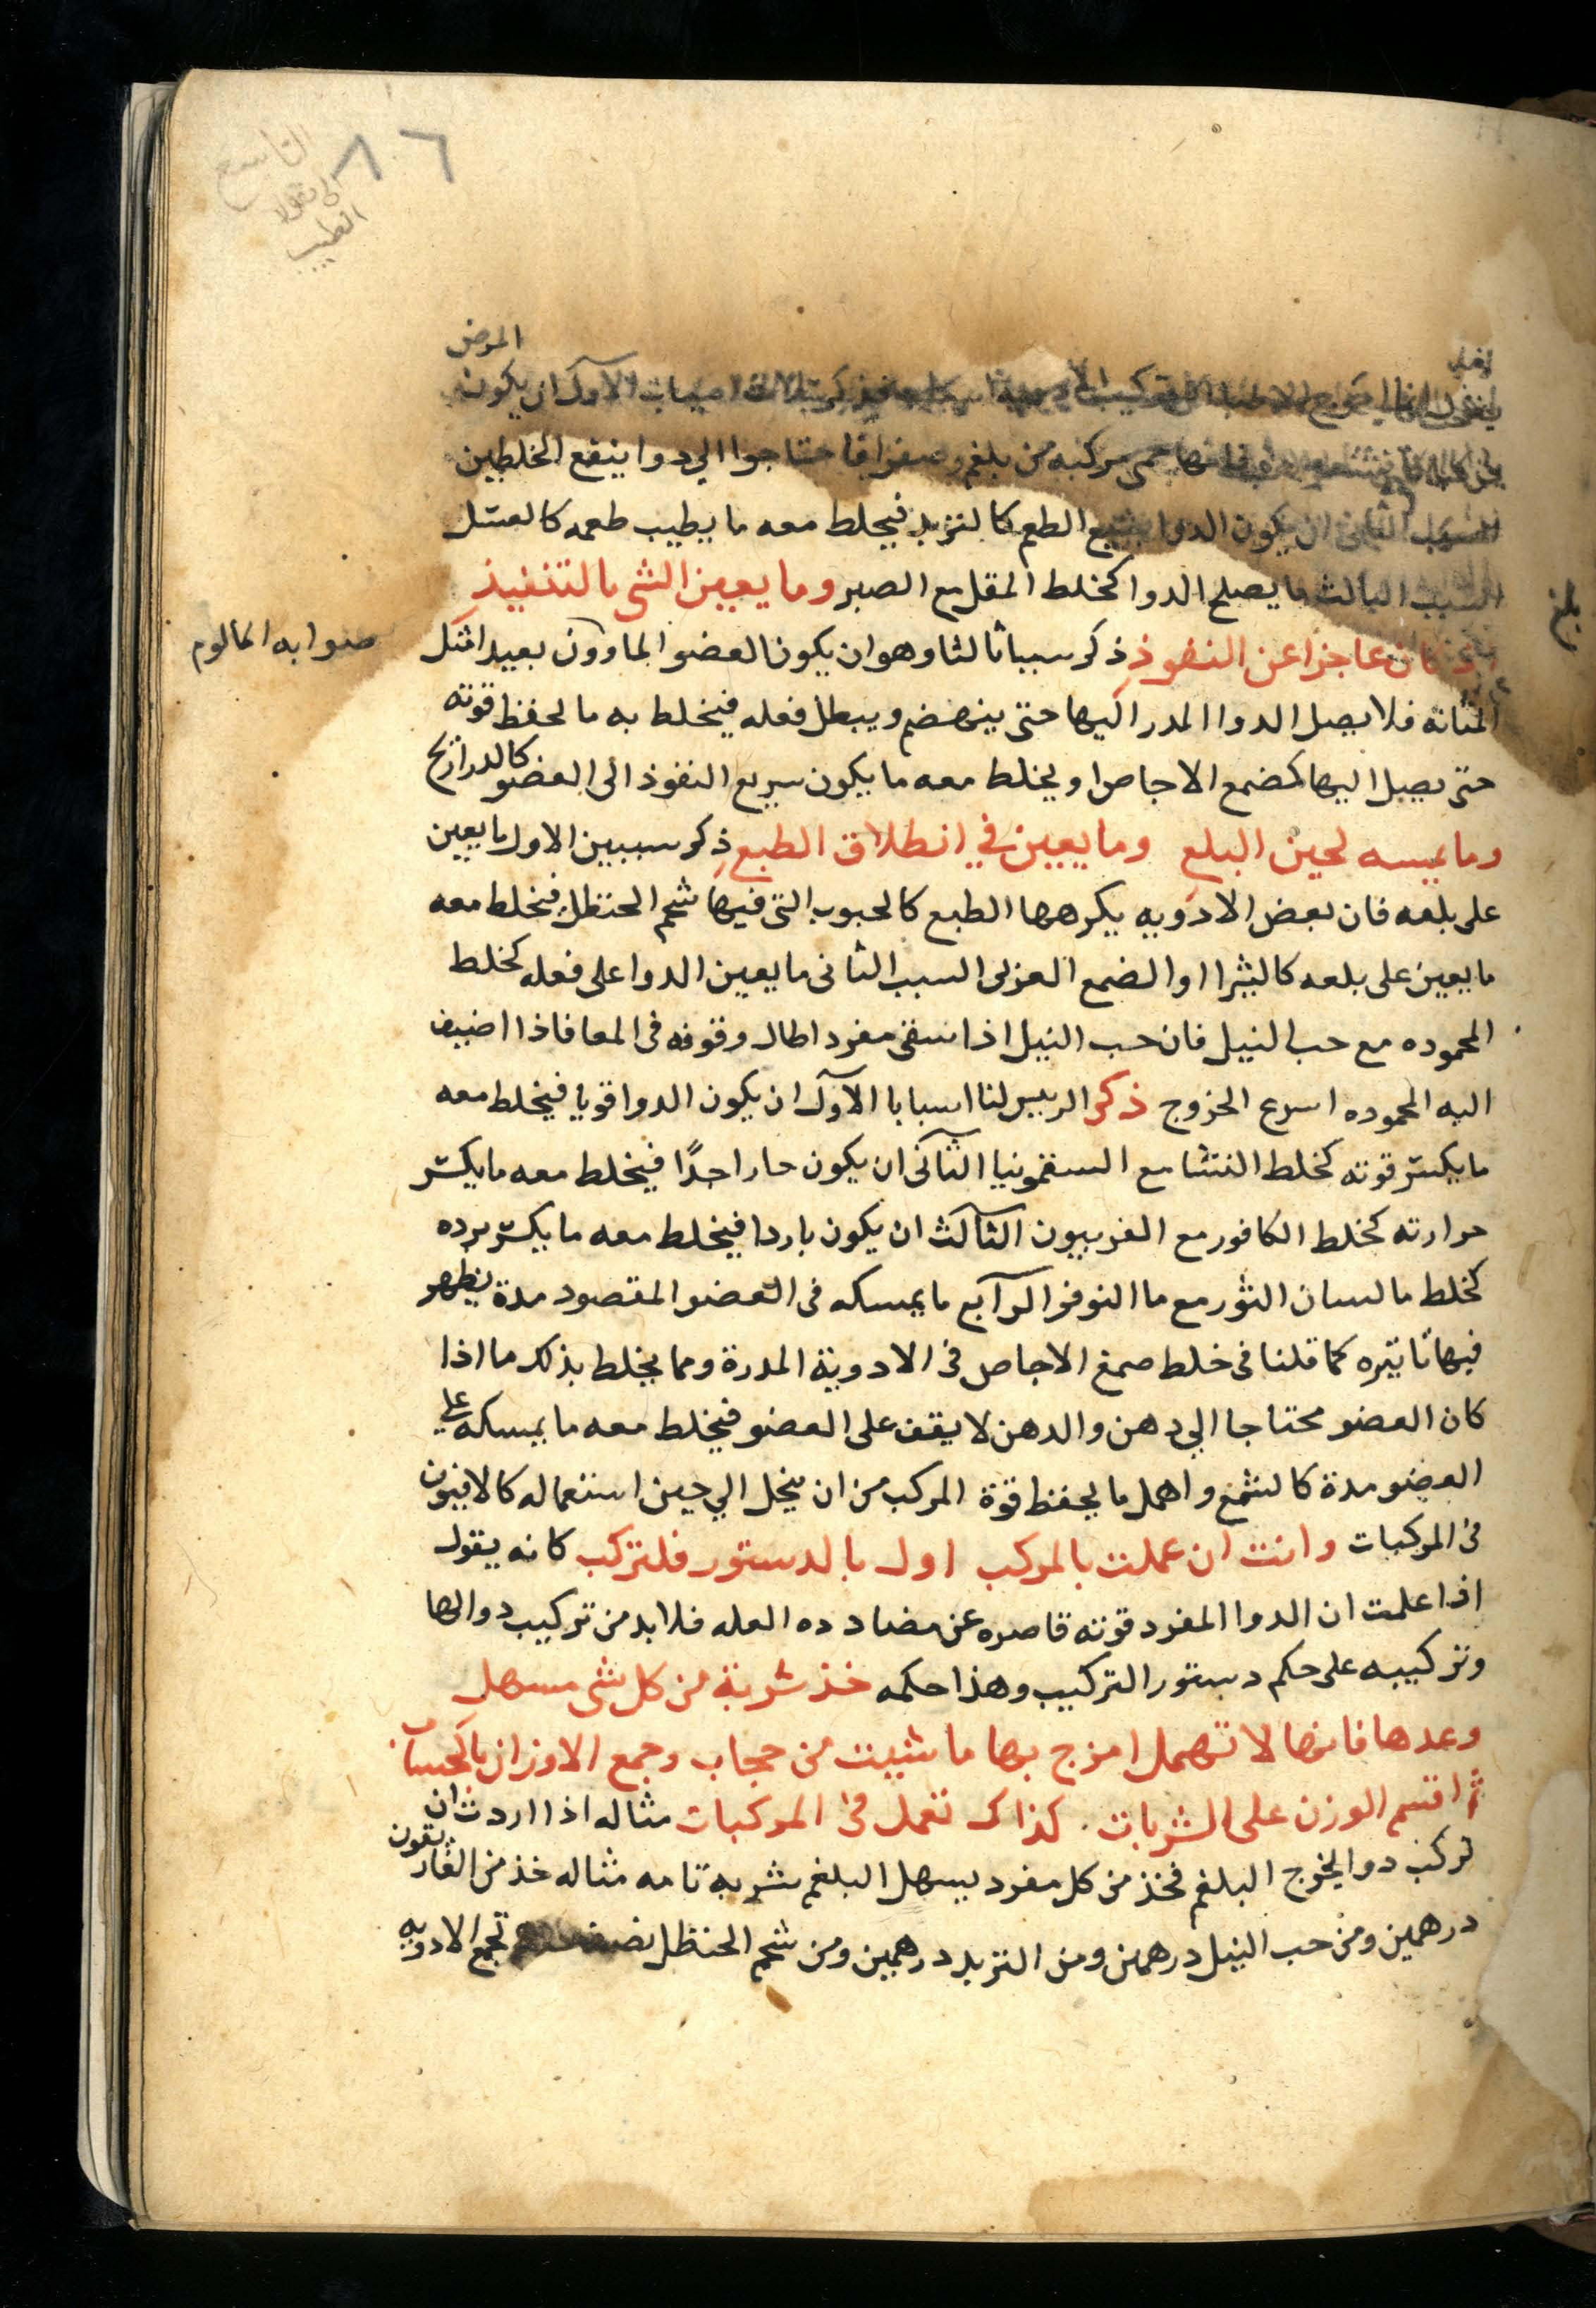 ٨٦
التاسع
الطبيب
المرض
الاول ان يكون
حمى مركبه من بلغم وصفرا فاحتاجوا الي دوا ينفع الخلطين
الثانى ان يكون الدوا بشيع الطعم كالتزبد فيخلط معه ما يطيب طعمه كالعسل
السبب الثالث ما يصلح الدوا كخلط المقل مع الصبر وما يعين الشى بالتنفيذ
صوابه كالالوم
كان عاجزا عن النفوذ ذكر سببا ثالثا وهو ان يكون العضو الماووف بعيدا مثل
المثانه فلا يصل الدوا المدر اليها حتى ينهضم ويبطل فعله فيخلط به ما يحفظ قوته
حتى يصل اليها كضمع الاجاص او يخلط معه ما يكون سريع النفوذ الى العضو كالدراريح
وما يمسه لحين البلع وما يعين في انطلاق الطبع ذكر سببين الاول ما يعين
على بلعه فان بعض الادويه يكرهها الطبع كالحبوب التى فيها شحم الحنظل فيخلط معه
ما يعين على بلعه كالبثيرا او الضمع العزلى السبب الثانى ما يعين الدوا على فعله كخلط
المحموده مع حب النيل فان حب النيل اذا سقى مفردا طال وقوفه فى المعا فاذا اضيف
اليه المحموده اسرع الخروج ذكر الرييس لنا اسبابا الآول ان يكون الدوا قويا فيخلط معه
ما يكسر قوته كخلط النشا مع السقمونيا الثانى ان يكون حارا حدًا فيخلط معه ما يكسر
حرارته كخلط الكافور مع الفربيون الثالث ان يكون باردا فيخلط معه ما يكسر برده
كخلط ما لسان الثور مع ما النوفر الرابع ما يمسكه فى العضو المقصود مدة يظهر
فيها تاثيره كما قلنا فى خلط صمغ الاجاص فى الادوية المدرة ومما يخلط بذلك ما اذا
كان العضو محتاجا الي دهن والدهن لا يقف على العضو فيخلط معه ما يمسكه على
العضو مدة كالشمع واهمل ما يحفظ قوة المركب من ان ينحل الي حين استعماله كالافيون
فى المركبات وانت ان عملت بالمركب اول بالدستور فلتركب كانه يقول
اذا علمت ان الدوا المفرد قوته قاصره عن مضادده العله فلا بد من تركيب دوا لها
وتركيبه على حكم دستور التركيب وهذا حكمه خذ شربة من كل شى مسهل
وعدها فانها لا تهمل امزج بها ما شيت من حجاب وجمع الاوزان بالحساب
ثم اقسم الوزن على الشربات . كذاك تعمل فى المركبات مثاله اذا اردت ان
تركب دوا يخرج البلغم فخذ من كل مفرد يسهل البلغم شربه تامه مثاله خذ من الغاريقون
درهمين ومن حب النيل درهمين ومن التربد درهمين ومن شحم الحنظل تجمع الادويه